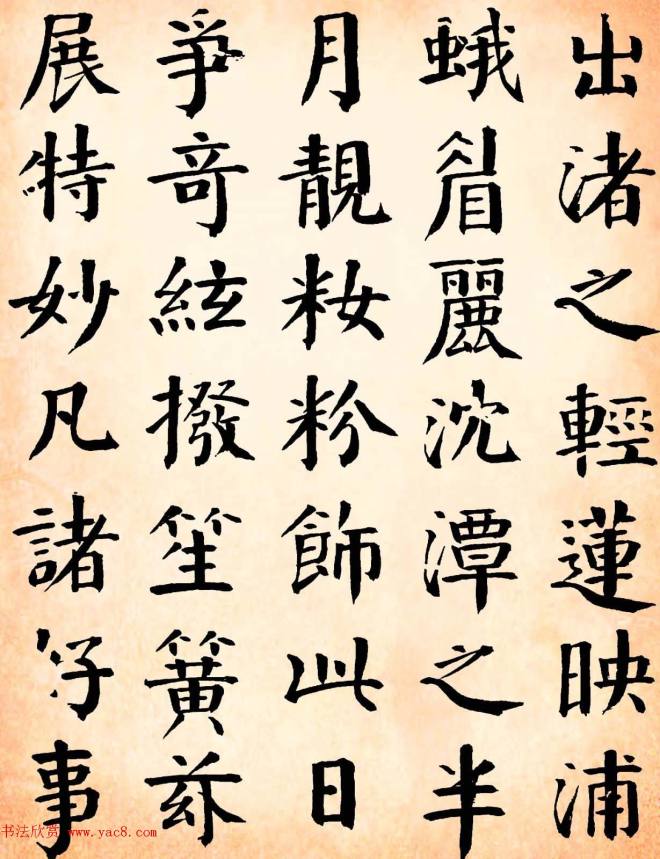 出渚之輕蓮映浦
蛾眉麗沈潭之半
月靚籹粉飾此日
爭奇絃撥笙簧
展特妙凡諸好事
书法欣赏 www.yac8.com